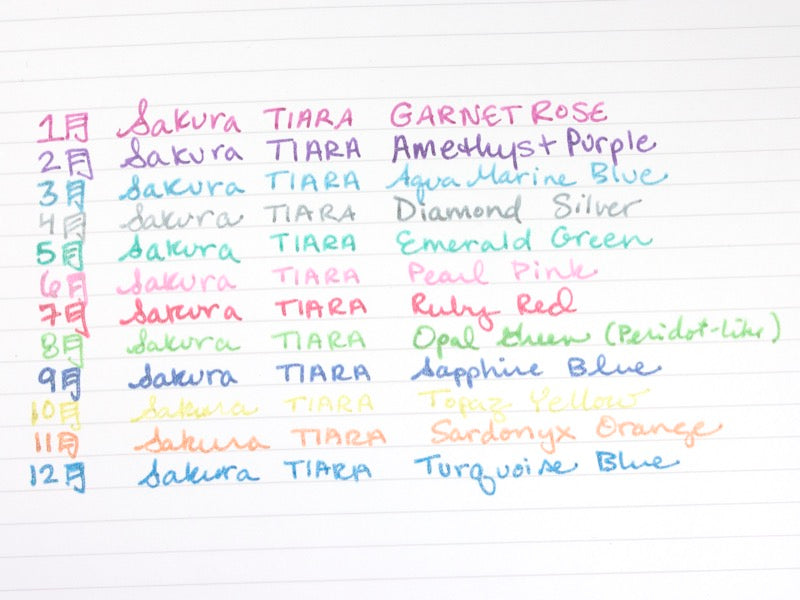 1月 Sakura TIARA GARNET ROSE
2月 Sakura TIARA Amethyst Purple
3月 Sakura TIARA Aqua Marine Blue
4月 Sakura TIARA Diamond Silver
5月 Sakura TIARA Emerald Green
6月 Sakura TIARA Pearl Pink
7月 Sakura TIARA Ruby Red
8月 Sakura TIARA Opal Green (Peridot-like)
9月 Sakura TIARA Sapphire Blue
10月 Sakura TIARA Topaz Yellow
11月 Sakura TIARA Sardonyx Orange
12月 Sakura TIARA Turquoise Blue